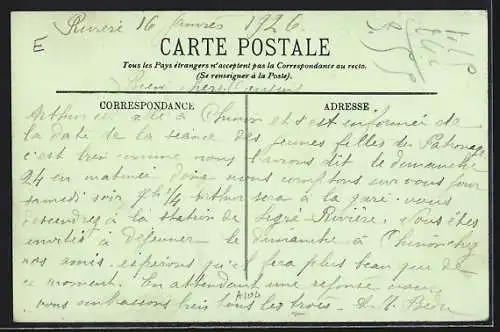 Rivière 16 Janvier 1926.
E
CARTE POSTALE
Tous les Pays étrangers n'acceptent pas la Correspondance au recto.
(Se renseigner à la Poste.)
Bien chers Cousins
CORRESPONDANCE
ADRESSE
Arthur est allé à Chinon et s'est informé de
la date de la séance des jeunes filles du Patronage
c'est bien comme nous l'avons dit le dimanche
24 en matinée donc nous comptons sur vous pour
samedi soir 7h 1/4 Arthur sera à la gare. vous
descendrez à la station de Ligré-Rivière. Vous êtes
invités à déjeuner le dimanche à Chinon chez
nos amis. espérons qu'il fera plus beau que de
ce moment. En attendant une réponse nous
vous embrassons bien tous les trois. A.
A104